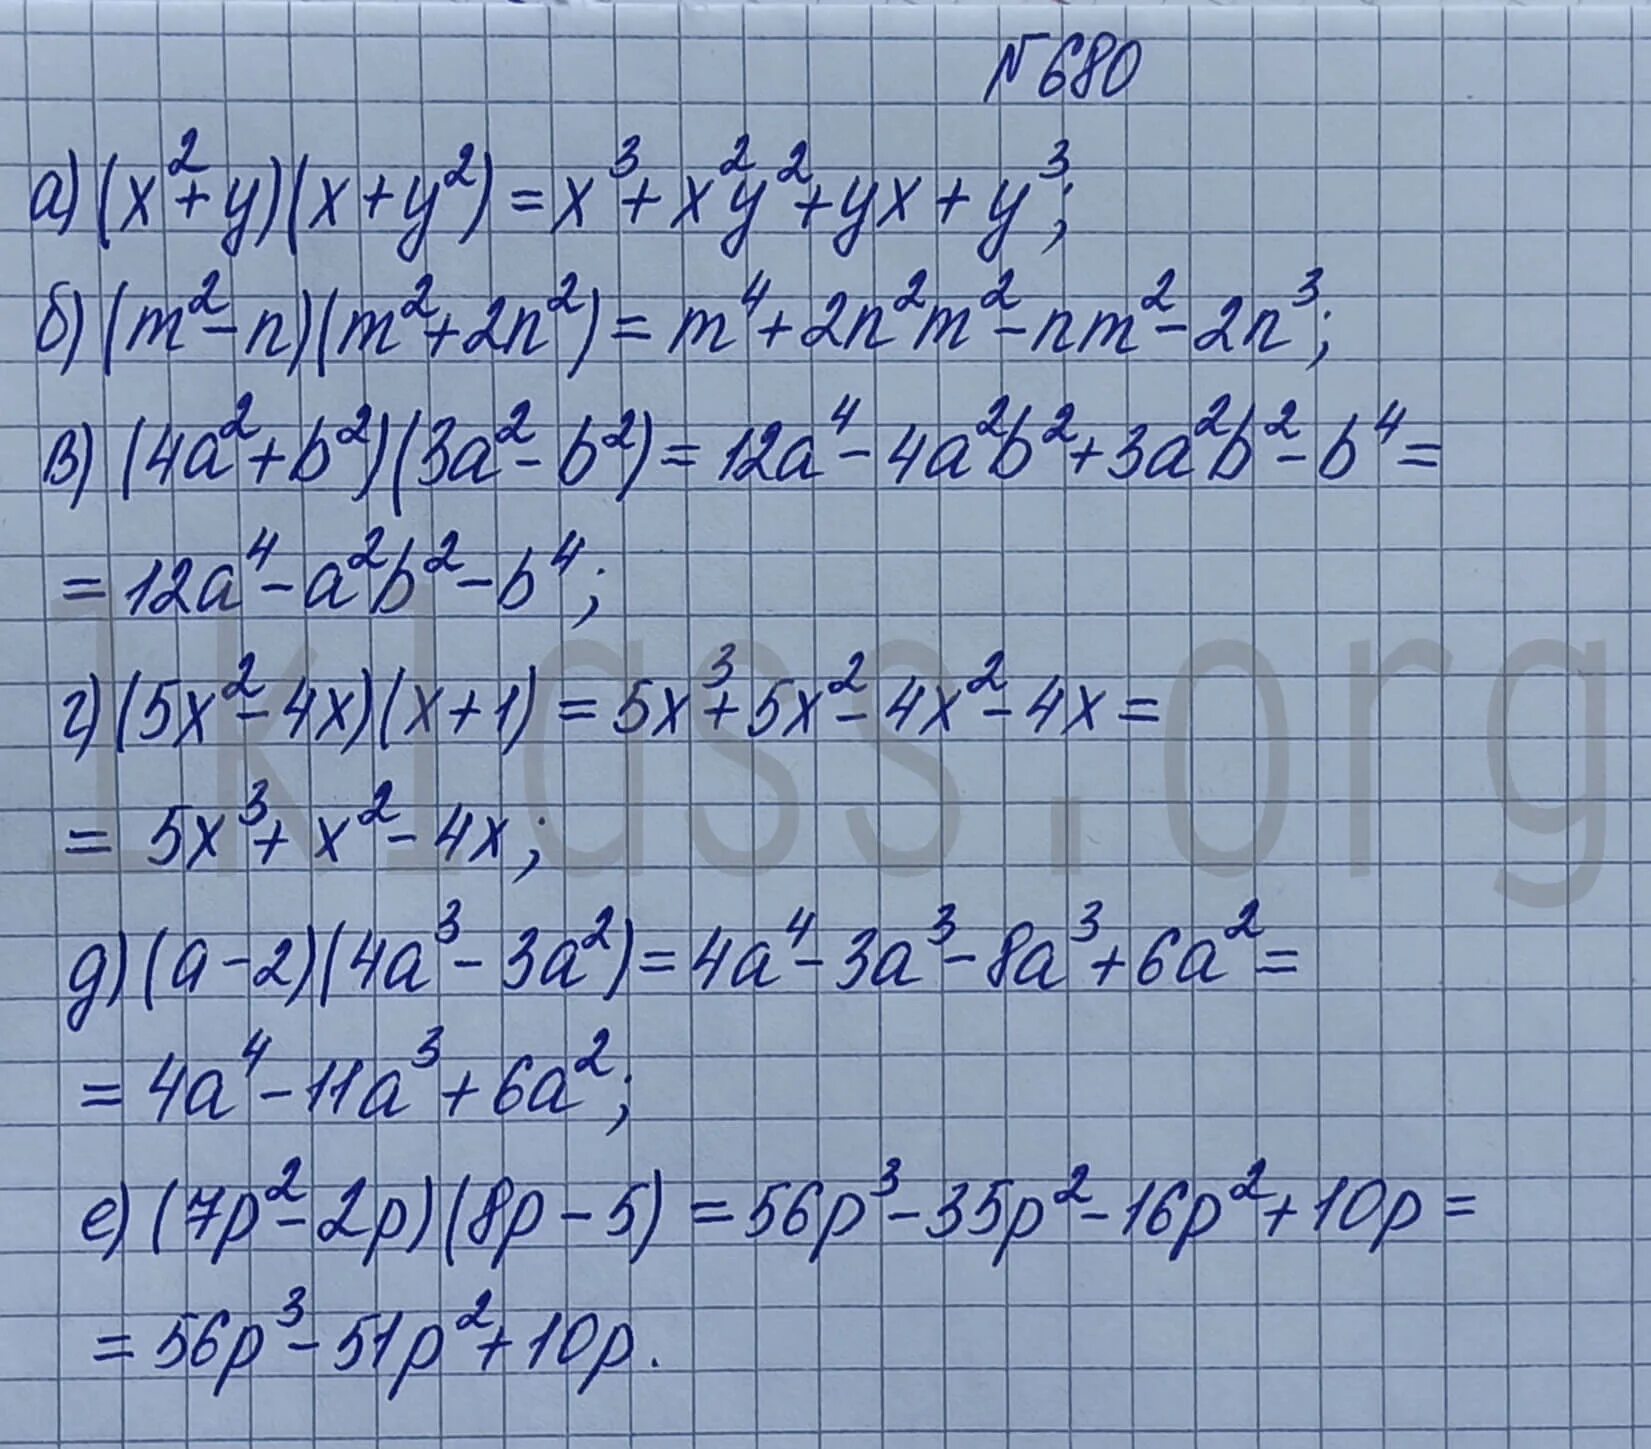 №680
а) (x²+y)(x+y²)=x³+x²y²+yx+y³;
б) (m²-n)(m²+2n²)=m⁴+2n²m²-nm²-2n³;
в) (4a²+b²)(3a²-b²)=12a⁴-4a²b²+3a²b²-b⁴=
=12a⁴-a²b²-b⁴;
г) (5x²-4x)(x+1)=5x³+5x²-4x²-4x=
=5x³+x²-4x;
1klass.org
д) (a-2)(4a³-3a²)=4a⁴-3a³-8a³+6a²=
=4a⁴-11a³+6a²;
е) (7p²-2p)(8p-5)=56p³-35p²-16p²+10p=
=56p³-51p²+10p.